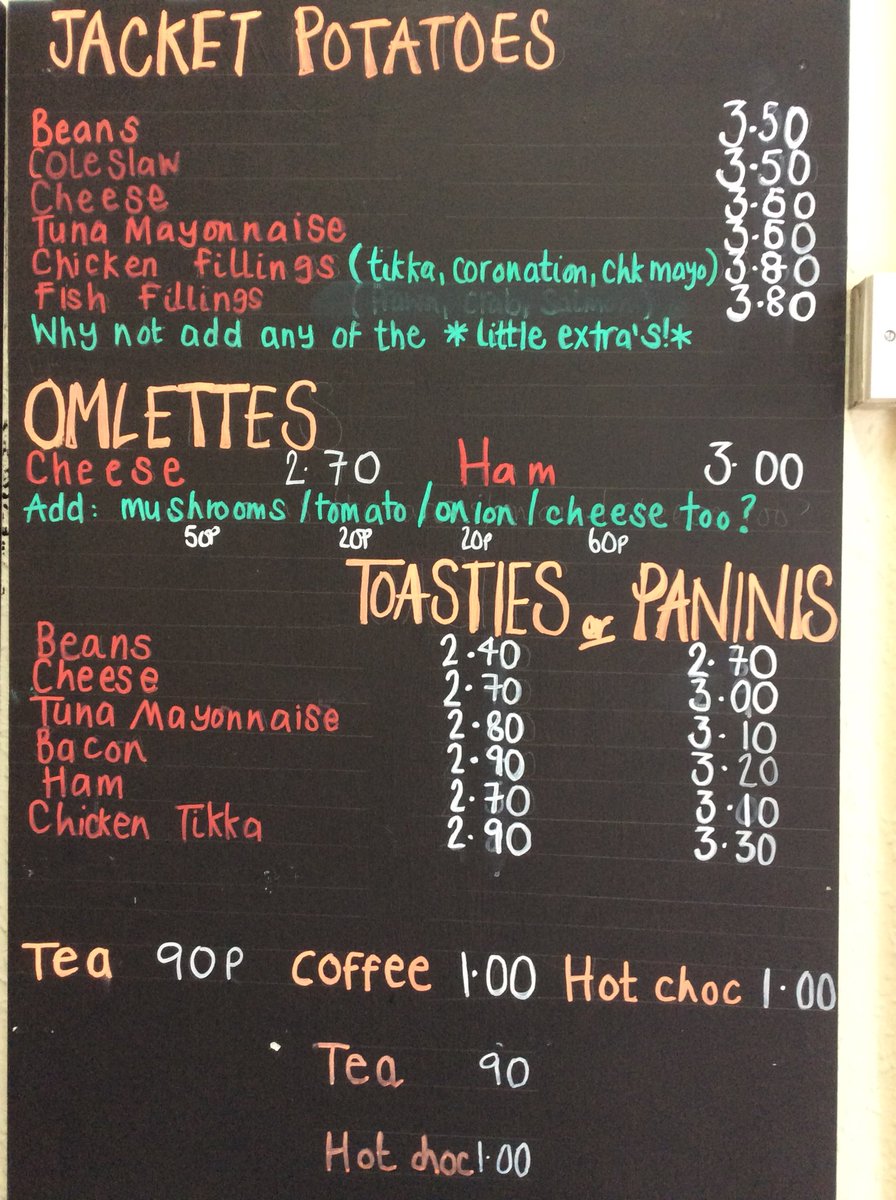 JACKET POTATOES
Beans 3.50
Coleslaw 3.50
Cheese 3.60
Tuna Mayonnaise 3.60
Chicken fillings (tikka, coronation, chk mayo) 3.80
Fish Fillings 3.80
Why not add any of the *little extra's!*
OMLETTES
Cheese 2.70 Ham 3.00
Add: mushrooms/tomato/onion/cheese too?
50P 20P 20P 60P
TOASTIES or PANINIS
Beans 2.40 2.70
Cheese 2.70 3.00
Tuna Mayonnaise 2.80 3.10
Bacon 2.90 3.20
Ham 2.70 3.10
Chicken Tikka 2.90 3.30
Tea 90P Coffee 1.00 Hot choc 1.00
Tea 90
Hot choc 1.00